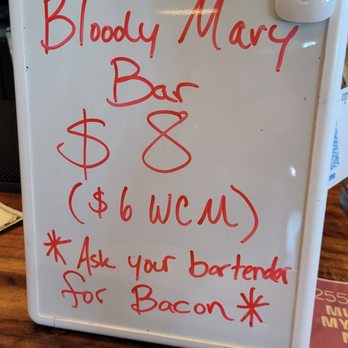 Bloody Mary
Bar
$ 8
($6 WCM)
* Ask your bartender
for Bacon *
255
MY